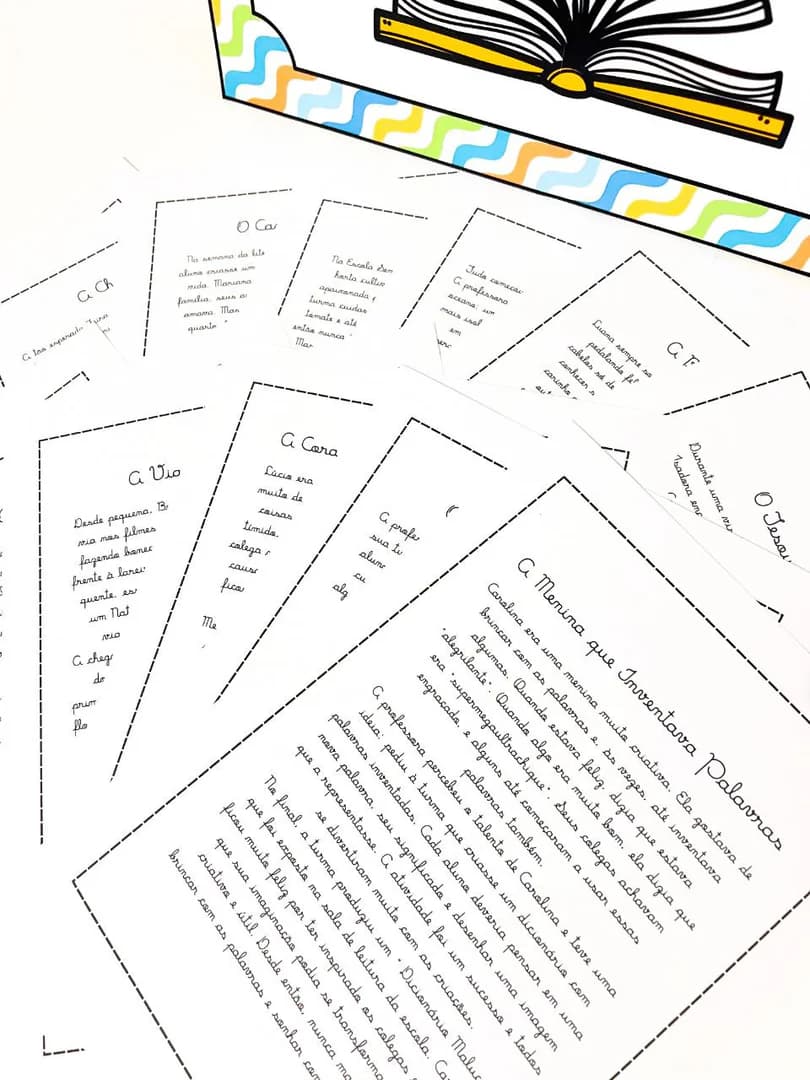 A Ch
A tão esperada
O Ca
Na semana da
aluno criasse um
vida. Mariana
família, seus
amava. Mas
quarto
Na Escola
horta
apaixonada
turma cuidou
tomate e até
entre nunca
Tudo começou
A professora
oceano: um
mais
em
A F
Luana sempre
pedalando
cabelos
conhecer
caminho
Durante uma
O Tesou
A Via
Desde pequena, B
via nos filmes
fazendo bonec
frente à larei
quente, es
um Nat
via
A cheg
de
prim
flo
A Cora
Lúcia era
muito de
coisas
tímida,
colega
fica
Me
A profes
sua tu
alun
cu
alg
A Menina que Inventava Palavras
Carolina era uma menina muito criativa. Ela gostava de
brincar com as palavras e, às vezes, até inventava
algumas. Quando estava feliz, dizia que estava
"alegrilante". Quando algo era muito bom, ela dizia que
era "supermegaultrachique". Seus colegas achavam
engraçado, e alguns até começaram a usar essas
palavras também.
A professora percebeu o talento de Carolina e teve uma
ideia: pediu à turma que criasse um dicionário com
palavras inventadas. Cada aluno deveria pensar em uma
nova palavra, seu significado e desenhar uma imagem
que a representasse. A atividade foi um sucesso e todos
se divertiram muito com as criações.
No final, a turma produziu um "Dicionário Maluc
que foi exposto na sala de leitura da escola. Ca
ficou muito feliz por ter inspirado os colegas
que sua imaginação podia se transforma
criativo e útil. Desde então, nunca ma
brincar com as palavras e sonhar com